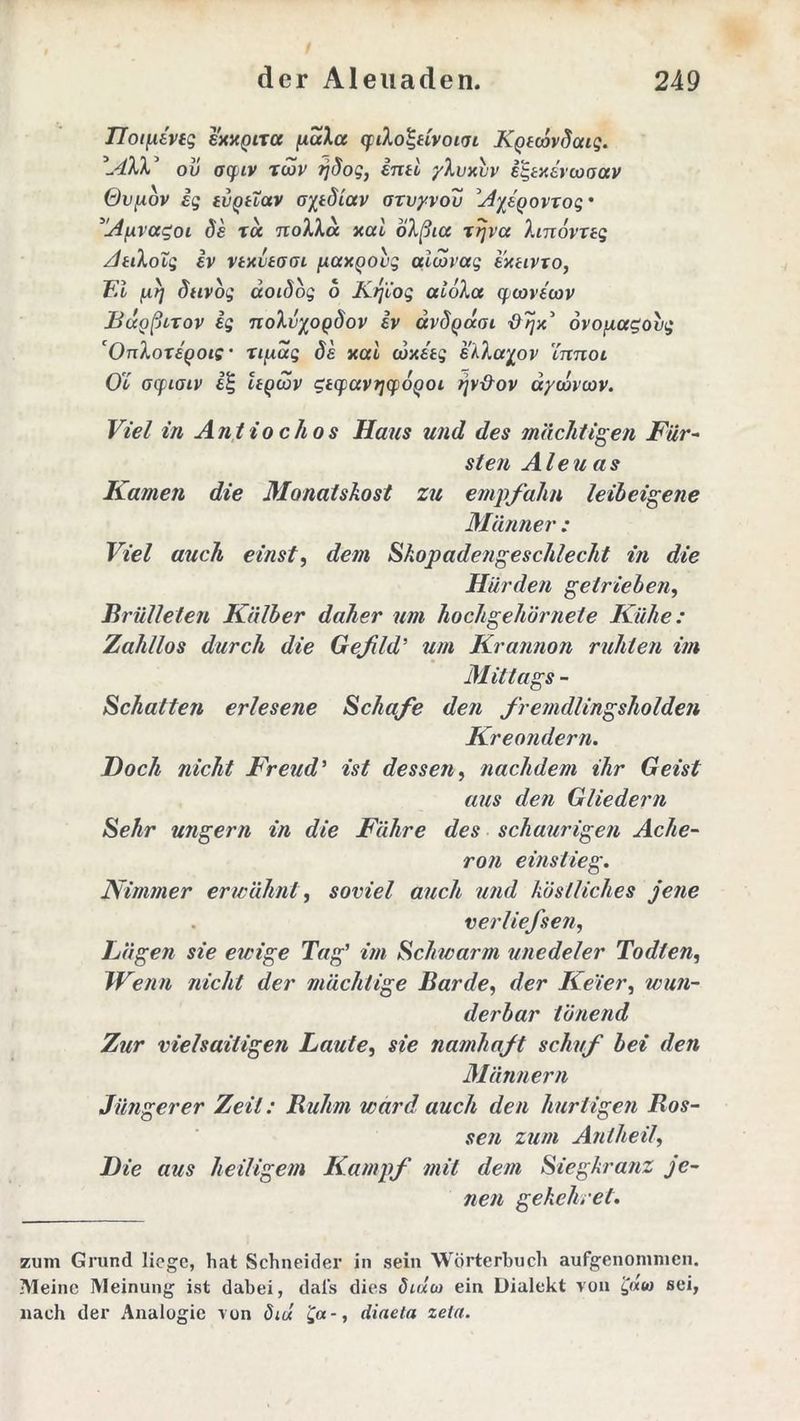 der Aleuaden. 249
Ποιμένες ἔκκριτα μᾶλα φιλοξείνοισι Κρεώνδαις.
Ἀλλ’ οὔ σφιν τῶν ἦδος, ἐπεὶ γλυκὺν ἐξεκένωσαν
Θυμὸν ἐς εὐρεῖαν σχεδίαν στυγνοῦ Ἀχέροντος·
Ἄμναϛοι δὲ τὰ πολλὰ καὶ ὄλβια τῆνα λιπόντες
Δειλοῖς ἐν νεκύεσσι μακροὺς αἰῶνας ἔκειντο,
Εἰ μὴ δεινὸς ἀοιδὸς ὁ Κήϊος αἰόλα φωνέων
Βάρβιτον ἐς πολύχορδον ἐν ἀνδράσι θῆκ’ ὀνομαϛοὺς
Ὁπλοτέροις· τιμᾶς δὲ καὶ ὠκέες ἔλλαχον ἵπποι
Οἵ σφισιν ἐξ ἱερῶν ϛεφανηφόροι ἦνθον ἀγώνων.
Viel in Antiochos Haus und des mächtigen Für-
sten Aleuas
Kamen die Monatskost zu empfahn leibeigene
Männer:
Viel auch einst, dem Skopadengeschlecht in die
Hürden getrieben,
Brülleten Kälber daher um hochgehörnete Kühe:
Zahllos durch die Gefild’ um Krannon ruhten im
Mittags-
Schatten erlesene Schafe den fremdlingsholden
Kreondern.
Doch nicht Freud’ ist dessen, nachdem ihr Geist
aus den Gliedern
Sehr ungern in die Fähre des schaurigen Ache-
ron einstieg.
Nimmer erwähnt, soviel auch und köstliches jene
verließen,
Lägen sie ewige Tag’ im Schwarm unedeler Todten,
Wenn nicht der mächtige Barde, der Keïer, wun-
derbar tönend
Zur vielsaitigen Laute, sie namhaft schuf bei den
Männern
Jüngerer Zeit: Ruhm ward auch den hurtigen Ros-
sen zum Antheil,
Die aus heiligem Kampf mit dem Siegkranz je-
nen gekehret.
zum Grund liege, hat Schneider in sein Wörterbuch aufgenommen.
Meine Meinung ist dabei, daſs dies διάω ein Dialekt von ζάω sei,
nach der Analogie von διά ζα-, diaeta zeta.